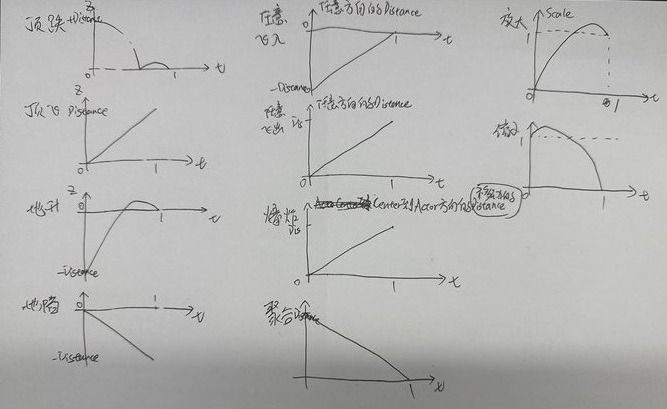 顶跌 +Distance
Z
0
1
t
顶飞 Distance
Z
0
1
t
地升
Z
0
1
t
-Distance
地陷
0
1
t
-Distance
任意
飞入
任意方向的Distance
0
1
t
-Distance
任意
飞出
任意方向的Distance
Dis
0
1
t
爆炸
Center到Actor方向的Distance
Dis
0
1
t
聚合 Distance
1
t
放大
Scale
1
0
1
t
缩小
1
0
1
t